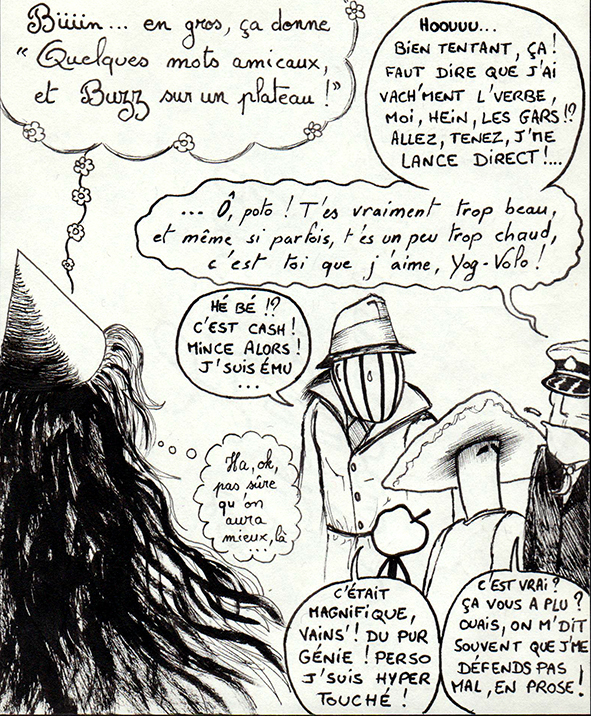 Büüin... en gros, ça donne
“ Quelques mots amicaux,
et Buzz sur un plateau ! ”
HOOUUU...
BIEN TENTANT, ÇA !
FAUT DIRE QUE J'AI
VACH'MENT L'VERBE,
MOI, HEIN, LES GARS !?
ALLEZ, TENEZ, J'ME
LANCE DIRECT !...
... Ô, poto ! T'es vraiment trop beau,
et même si parfois, t'es un peu trop chaud,
c'est toi que j'aime, Yog-Volo !
HÉ BÉ !?
C'EST CASH !
MINCE ALORS !
J'SUIS ÉMU
...
Ha, ok,
pas sûre
qu'on
aura
mieux, là
...
C'ÉTAIT
MAGNIFIQUE,
VAINS' ! DU PUR
GÉNIE ! PERSO
J'SUIS HYPER
TOUCHÉ !
C'EST VRAI ?
ÇA VOUS A PLU ?
OUAIS, ON M'DIT
SOUVENT QUE J'ME
DÉFENDS PAS
MAL, EN PROSE !